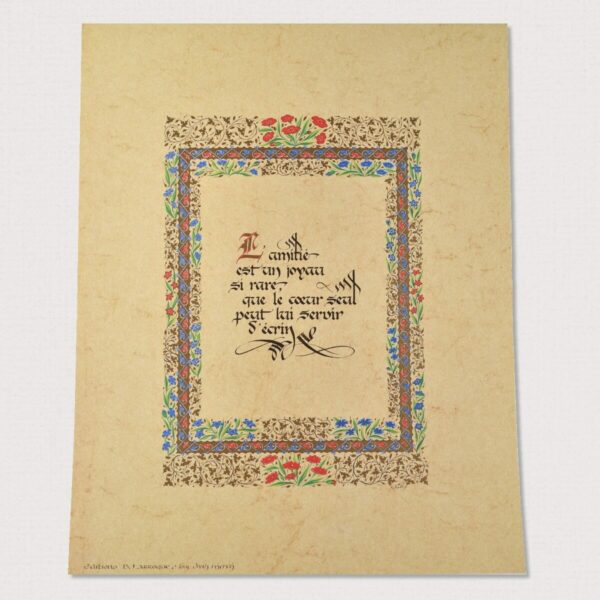 L'amitié
est un joyau
si rare,
que le cœur seul
peut lui servir
d'écrin
Editions D. Larroque